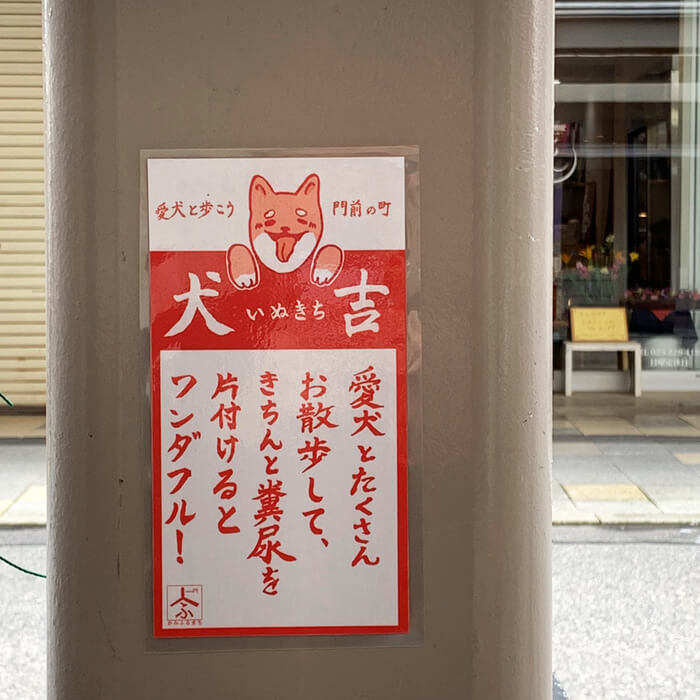 愛犬と歩こう
門前の町
犬 いぬきち 吉
愛犬とたくさん
お散歩して、
きちんと糞尿を
片付けると
ワンダフル!
かみふるまち